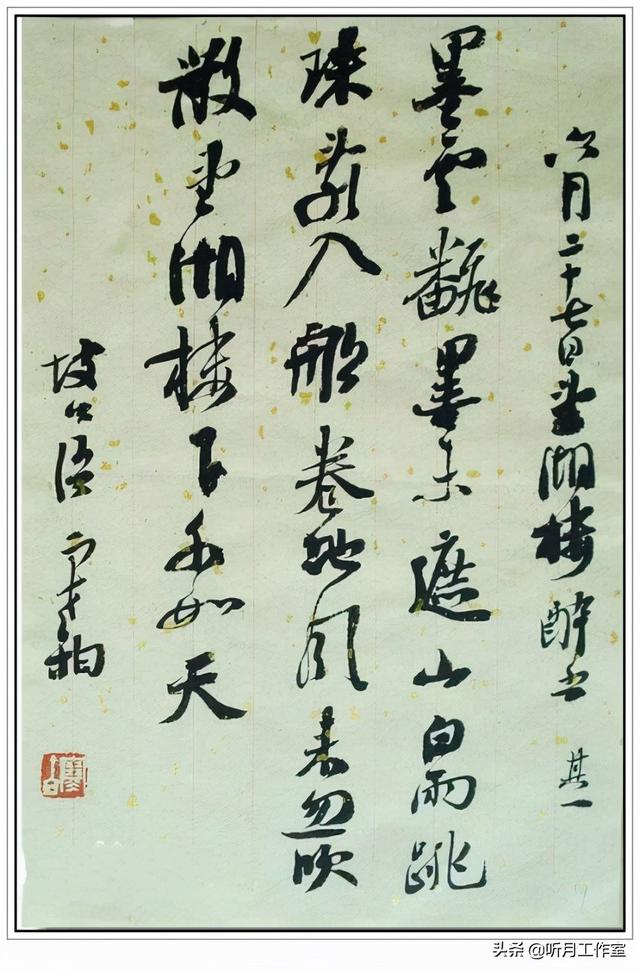 六月二十七日望湖楼醉书 其一
墨雲飜墨未遮山白雨跳
珠乱入船卷地风来忽吹
散望湖楼下水如天
坡公语
头条 @听月工作室